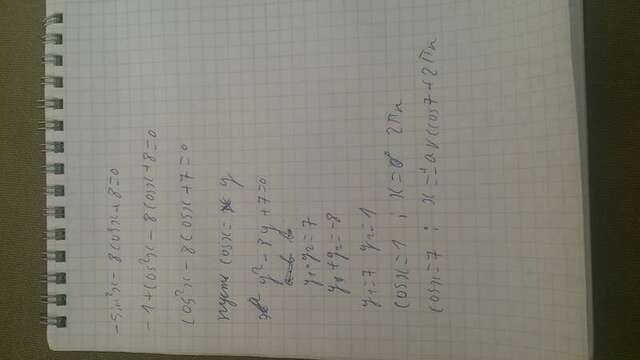 -sin²x - 8cosx + 8 = 0
-1 + cos²x - 8cosx + 8 = 0
cos²x - 8cosx + 7 = 0
пусть cosx = y
y² - 8y + 7 = 0
y₁·y₂ = 7
y₁ + y₂ = -8
y₁ = 7 y₂ = 1
cosx = 1 ; x = 2πn
cosx = 7 ; x = ± arccos7 + 2πn